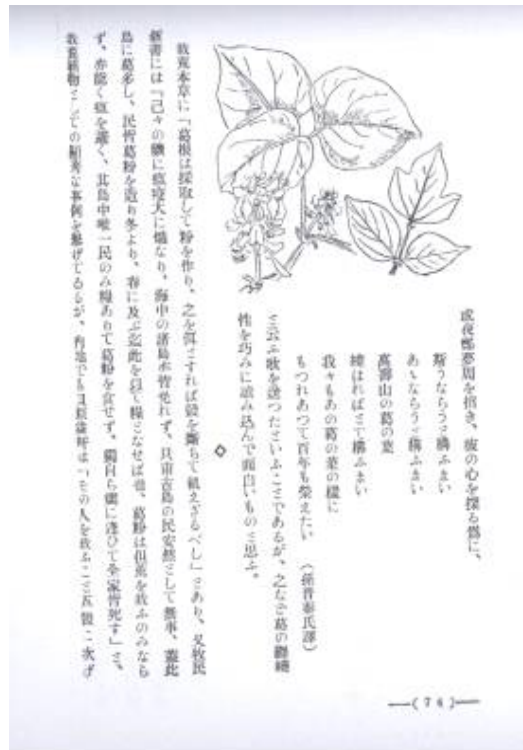 或夜鄭夢周を招き、彼の心を探る爲に、
斯うならうと構ふまい
あゝならうと構ふまい
萬壽山の葛の葉
纏はればとて構ふまい
我々もあの葛の葉の樣に
もつれあつて百年も榮えたい (孫晉泰氏譯)
と云ふ歌を送つたといふことであるが、之など葛の纏繞
性を巧みに讀み込んで面白いものと思ふ。
◇
救荒本草に「葛根は採取して粉を作り、之を餌とすれば穀を斷ちて飢えざるべし」とあり、又救民
には「己々の饑に疫大に熾なり、海中の諸島亦皆免れず、只東古島の民安然として無事、蓋此
島に葛多し、民皆葛粉を造り冬より、春に及ぶ迄此を以て糧となせば也、葛粉は但荒を救ふのみなら
ず、亦能く疫を避く、其島中唯一民のみ糧ありて葛粉を食せず、獨自ら癘に逢ひて全家皆死す」と、
救荒植物としての顯著な事例を擧げてゐるが、內地でも は「その人を救ふこと五穀に次ぎ
(76)